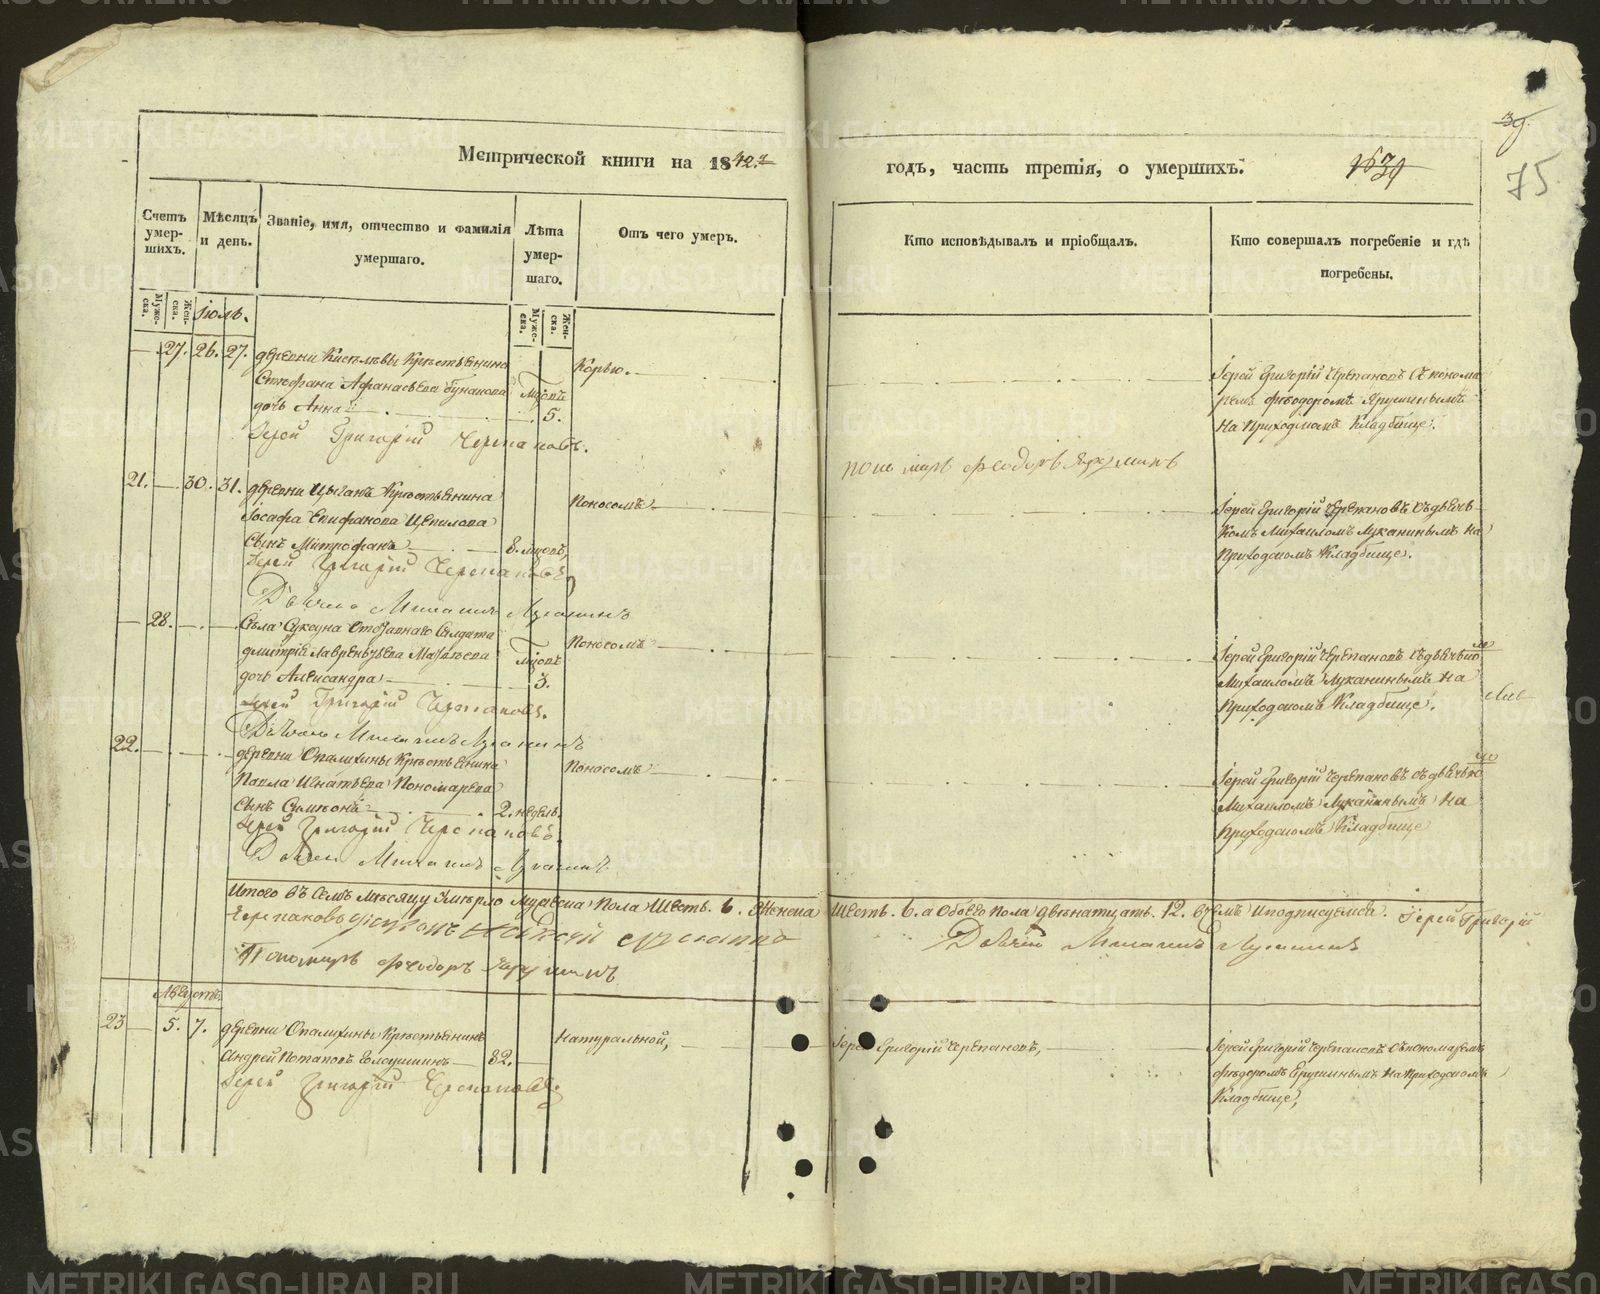 Метрической книги на 1842.й
годъ, часть третія, о умершихъ.
1639
39.
75
Счетъ умер-шихъ.
Мѣсяцъ и день.
Званіе, имя, отчество и фамилія умершаго.
Лѣта умер-шаго.
Отъ чего умеръ.
Кто исповѣдывалъ и пріобщалъ.
Кто совершалъ погребеніе и гдѣ погребены.
Муже-ска.
Жен-ска.
Іюль.
Муже-ска.
Жен-ска.
27. 26. 27. деревни Киселевы Крестьянина
Стефана Афанасьева Бунакова
дочь Анна
мцовъ
5.
Корью.
Іерей Григорій Черепановъ съ понома
ремъ Феодоромъ Ярушинымъ
на Приходскомъ Кладбище.
Іерей Григорій Черепановъ.
пономарь Феодоръ Ярушинъ
21. 30. 31. деревни Цыганъ Крестьянина
Іосафа Епифанова Щепилова
сынъ Митрофанъ 8. мцовъ,
Поносомъ
Іерей Григорій Черепановъ съ дьяч
комъ Михаиломъ Луканинымъ на
Приходскомъ Кладбище.
Іерей Григорій Черепановъ
Дьячекъ Михаилъ Луканинъ
28. Села Суксуна Отставнаго Солдата
Димитрія Лаврентьева
дочь Александра
мцовъ
3.
Поносомъ
Іерей Григорій Черепановъ съ дьячкомъ
Михаиломъ Луканинымъ на
Приходскомъ Кладбище.
Іерей Григорій Черепановъ.
Дьячекъ Михаилъ Луканинъ
22. деревни Опалихины Крестьянина
Павла Игнатьева Пономарева
сынъ Симеонъ 2. недель.
Поносомъ
Іерей Григорій Черепановъ съ дьячкомъ
Михаиломъ Луканинымъ на
Приходскомъ Кладбище
Іерей Григорій Черепановъ.
Дьячекъ Михаилъ Луканинъ
Итого въ семъ месяцу Умерло мужеска Пола Шесть. 6. Женска Шесть. 6. а Обоего пола двенатцать. 12. въ чемъ и подписуемся. Іерей Григорій
Черепановъ
Дьячекъ Михаилъ Луканинъ
Пономарь Феодоръ Ярушинъ
Августъ
23 5. 7. деревни Опалихины Крестьянинъ
Андрей Потаповъ 82.
Натуральной,
Іерей Григорій Черепановъ,
Іерей Григорій Черепановъ съ пономаремъ
Феодоромъ Ярушинымъ на Приходскомъ
Кладбище,
Іерей Григорій Черепановъ
METRIKI.GASO-URAL.RU